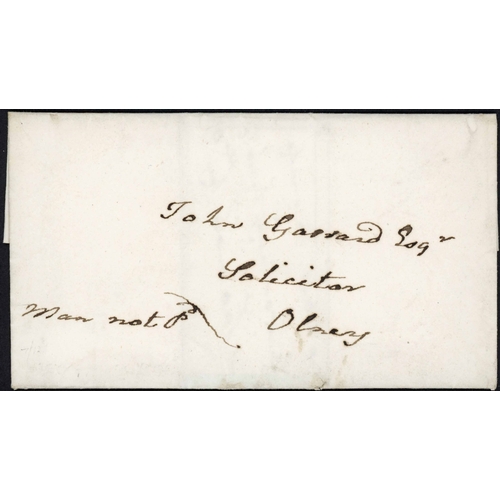 John Garrard Esqr
Solicitor
Man not Pd Olney